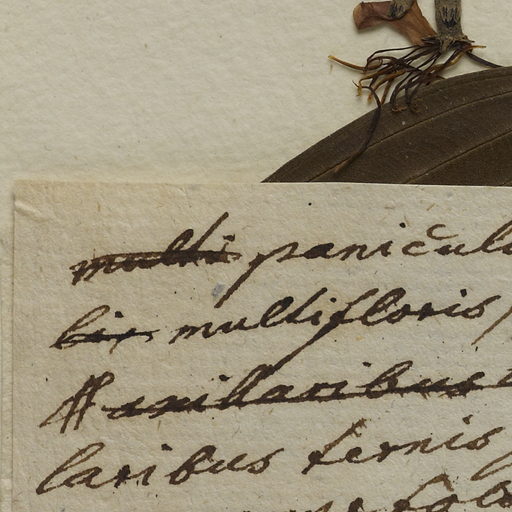 multi panicul
bis multifloris
axillaribus
laribus ternis